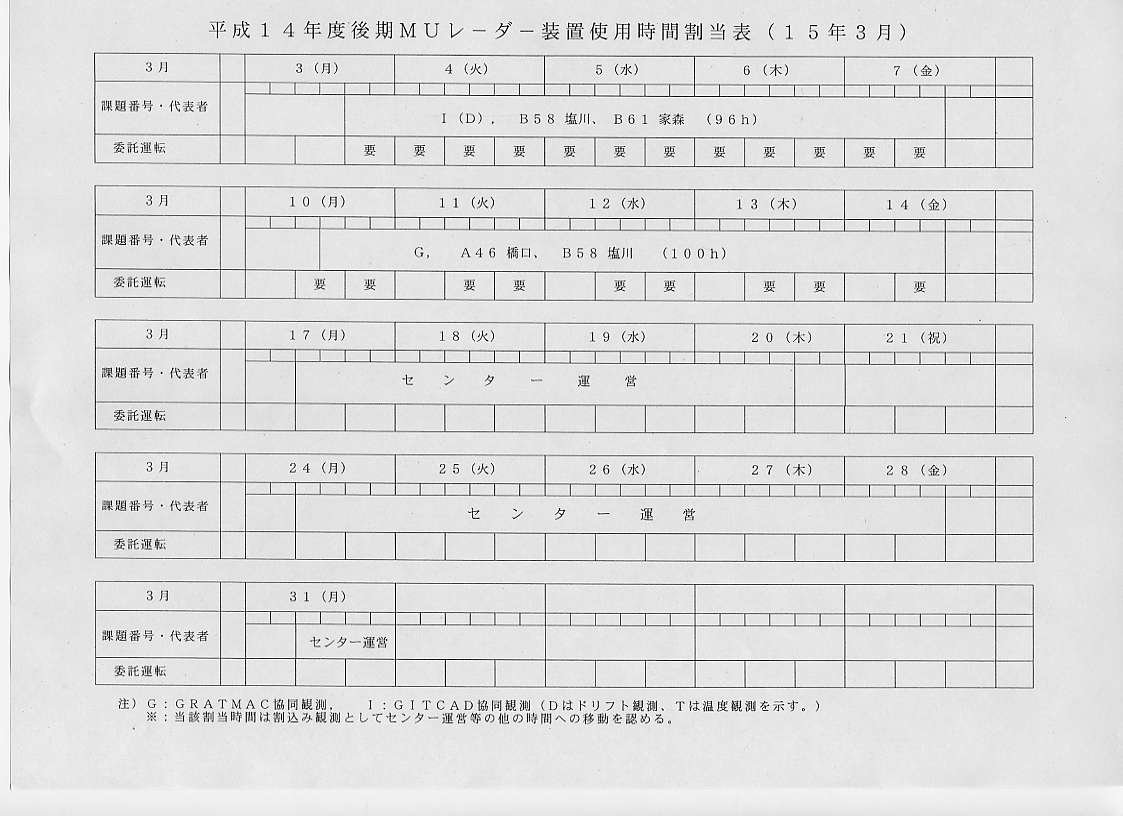 平成１４年度後期ＭＵレーダー装置使用時間割当表（１５年３月）
３月　３（月）　４（火）　５（水）　６（木）　７（金）
課題番号・代表者　Ｉ（Ｄ），　Ｂ５８ 塩川、Ｂ６１ 家森　（９６ｈ）
委託運転　要　要　要　要　要　要　要　要　要　要　要　要
３月　１０（月）　１１（火）　１２（水）　１３（木）　１４（金）
課題番号・代表者　Ｇ，　Ａ４６ 橋口、　Ｂ５８ 塩川　（１００ｈ）
委託運転　要　要　要　要　要　要　要　要　要
３月　１７（月）　１８（火）　１９（水）　２０（木）　２１（祝）
課題番号・代表者　センター運営
委託運転
３月　２４（月）　２５（火）　２６（水）　２７（木）　２８（金）
課題番号・代表者　センター運営
委託運転
３月　３１（月）
課題番号・代表者　センター運営
委託運転
注）Ｇ：ＧＲＡＴＭＡＣ協同観測，　Ｉ：ＧＩＴＣＡＤ協同観測（Ｄはドリフト観測、Ｔは温度観測を示す。）
※：当該割当時間は割込み観測としてセンター運営等の他の時間への移動を認める。